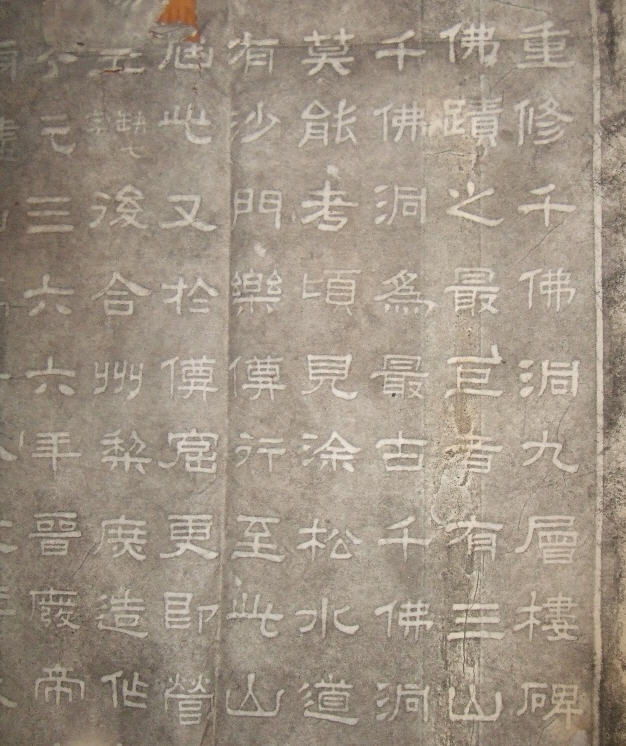 重修千佛洞九層樓碑
佛蹟之最巨者有三山
千佛洞爲最古千佛洞
莫能考頃見涂松水道
有沙門樂僔行至此山
屆此又於僔窟更即營
五缺七字後合州黎庶造作
公元三六六年晉廢帝